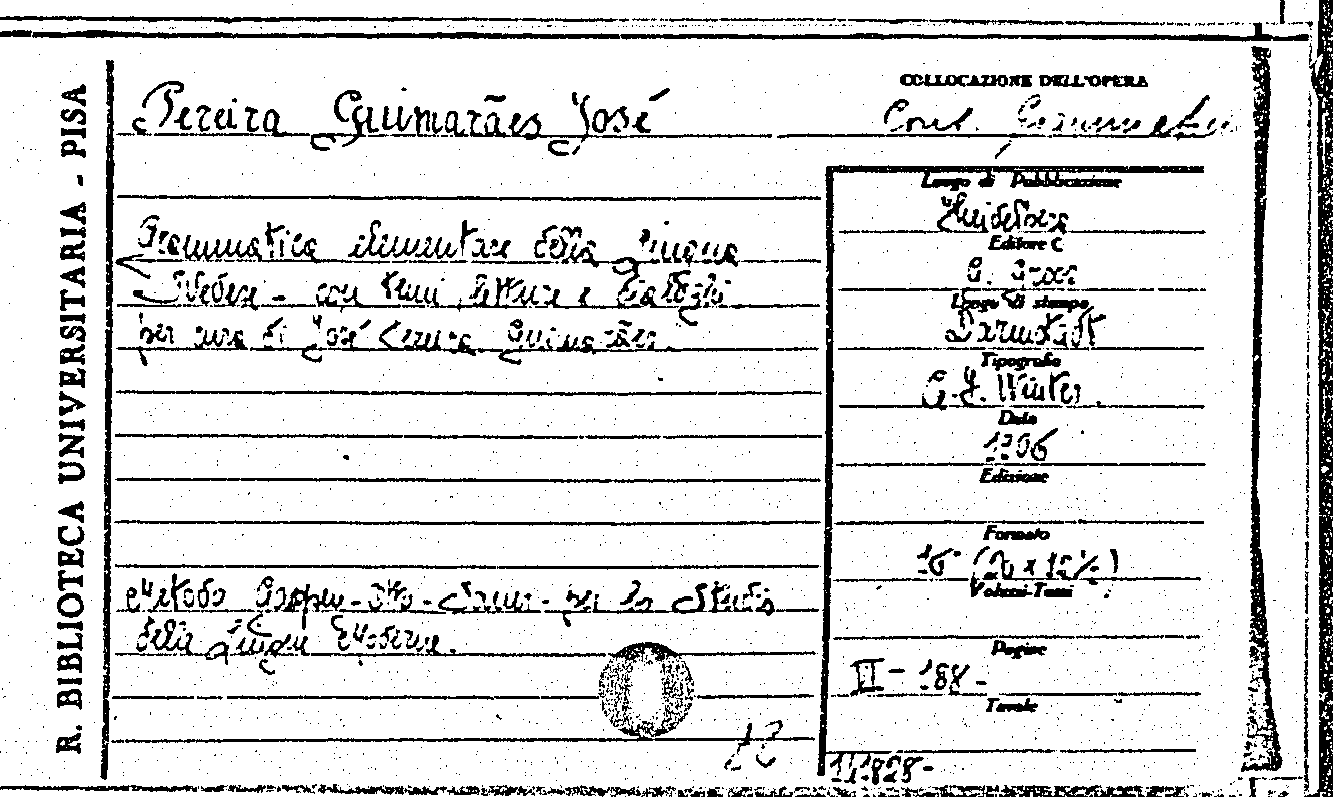 R. BIBLIOTECA UNIVERSITARIA - PISA
COLLOCAZIONE DELL'OPERA
Pereira Guimarães José
Cont.
Luogo di Pubblicazione
Heidelberg
Editore C
G. Groos
Luogo di stampa
Darmstadt
Tipografia
G. J. Winter
Data
1906
Edizione
Formato
16° (20 x 12½)
Volumi-Tomi
Pagine
188 -
Tavole
Grammatica elementare della lingua
Svedese - con temi, letture e dialoghi
per cura di José Pereira Guimarães.
Metodo Gaspey-Otto-Sauer - per lo studio
delle Lingue Moderne.